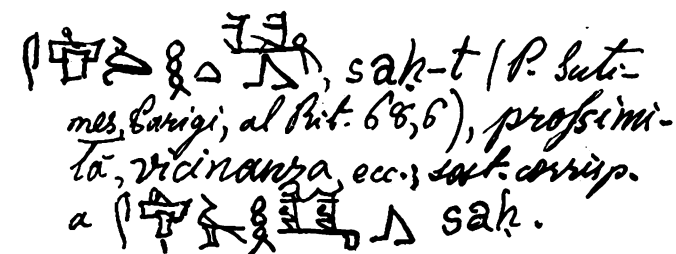 , saḥ-t (P. Suti-
mes, Parigi, al Rit. 68,6), prossimi-
tà, vicinanza, ecc.; sost. corrisp.
a saḥ.